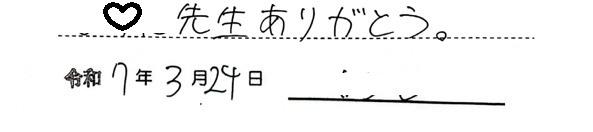 先生ありがとう。
令和7年3月24日